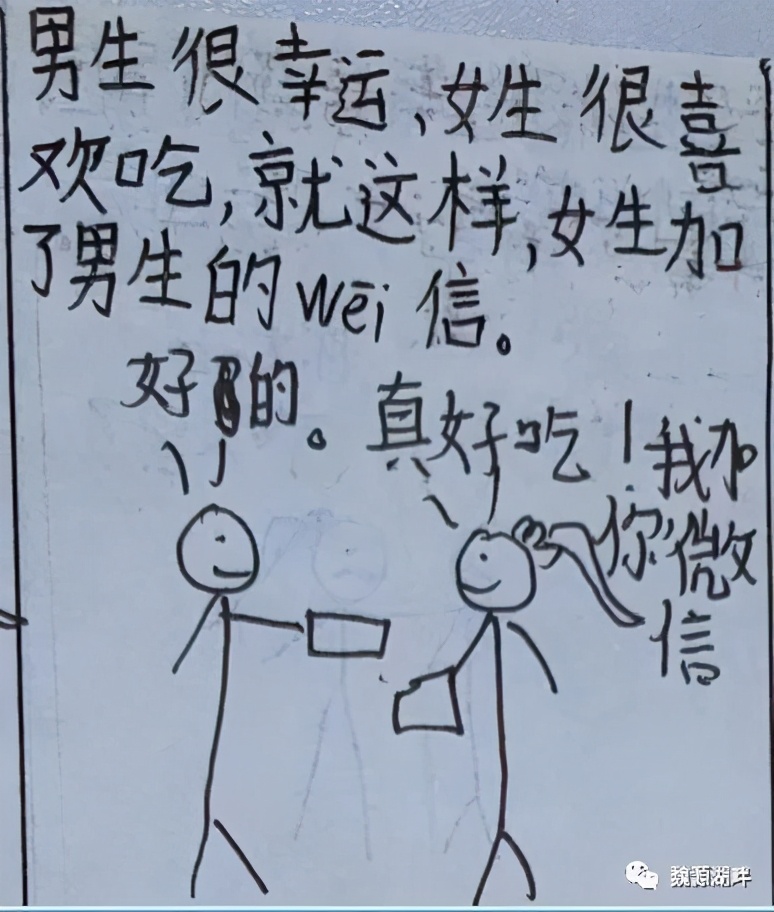 男生很幸运,女生很喜
欢吃,就这样,女生加
了男生的wēi信。
好的。
真好吃!我加
你微
信